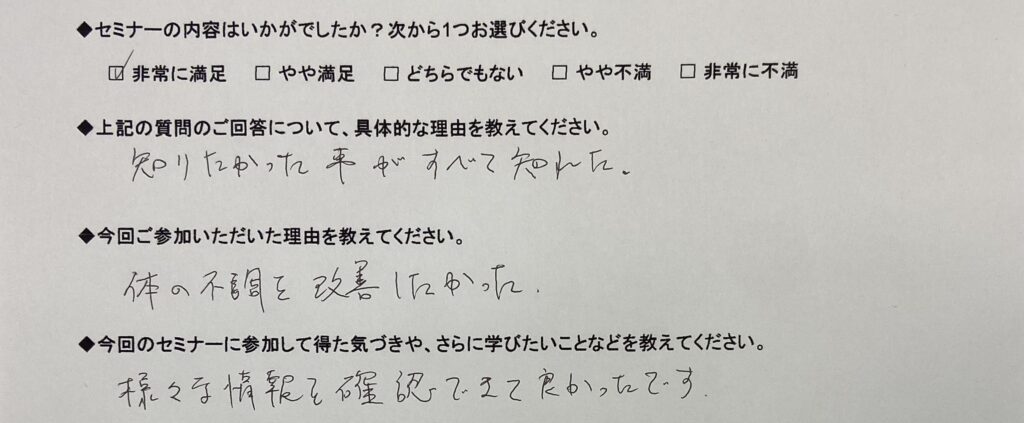 ◆セミナーの内容はいかがでしたか？次から1つお選びください。
☑ 非常に満足 □ やや満足 □ どちらでもない □ やや不満 □ 非常に不満
◆上記の質問のご回答について、具体的な理由を教えてください。
知りたかった事がすべて知れた。
◆今回ご参加いただいた理由を教えてください。
体の不調を改善したかった.
◆今回のセミナーに参加して得た気づきや、さらに学びたいことなどを教えてください。
様々な情報を確認できて良かったです.